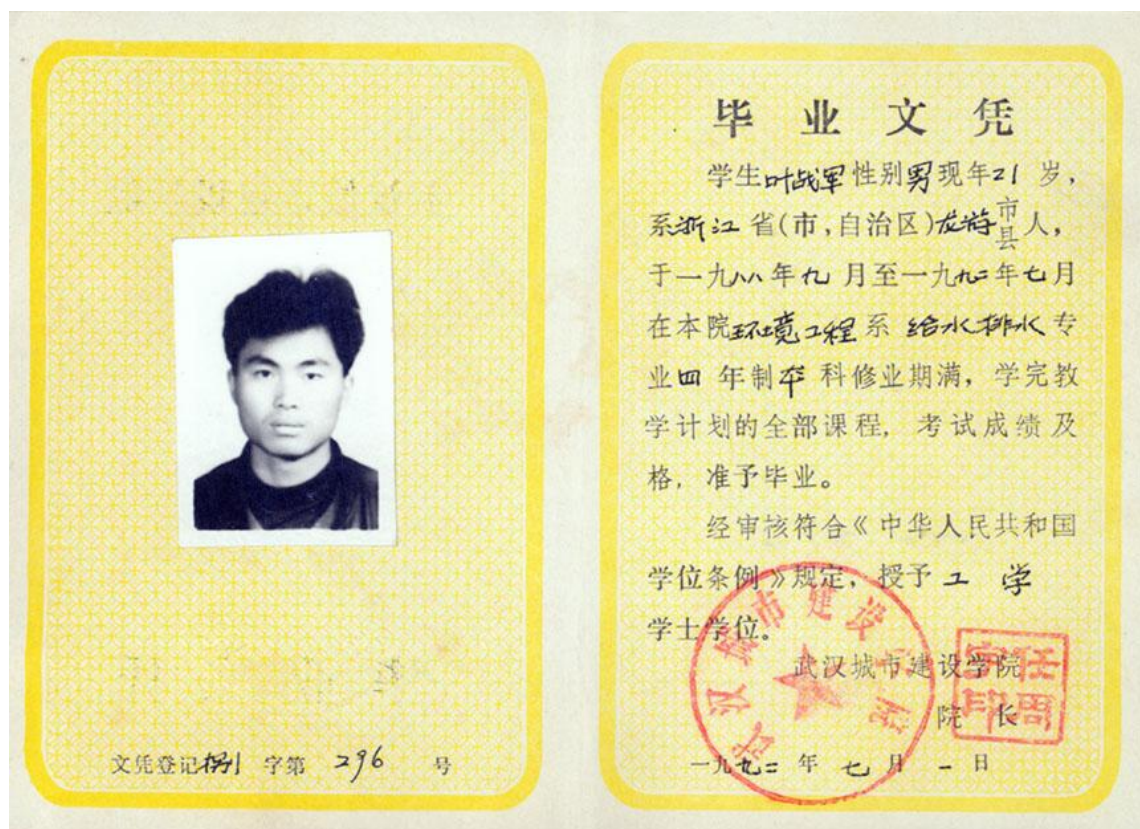 毕业文凭
学生叶战军性别男现年21岁，
系浙江省(市，自治区)龙游市县人，
于一九八八年九月至一九九二年七月
在本院环境工程系给水排水专
业四年制本科修业期满，学完教
学计划的全部课程，考试成绩及
格，准予毕业。
经审核符合《中华人民共和国
学位条例》规定，授予工学
学士学位。
武汉城市建设学院
院长
一九九二年七月一日
武汉城市建设学院
文凭登记捌字第296号